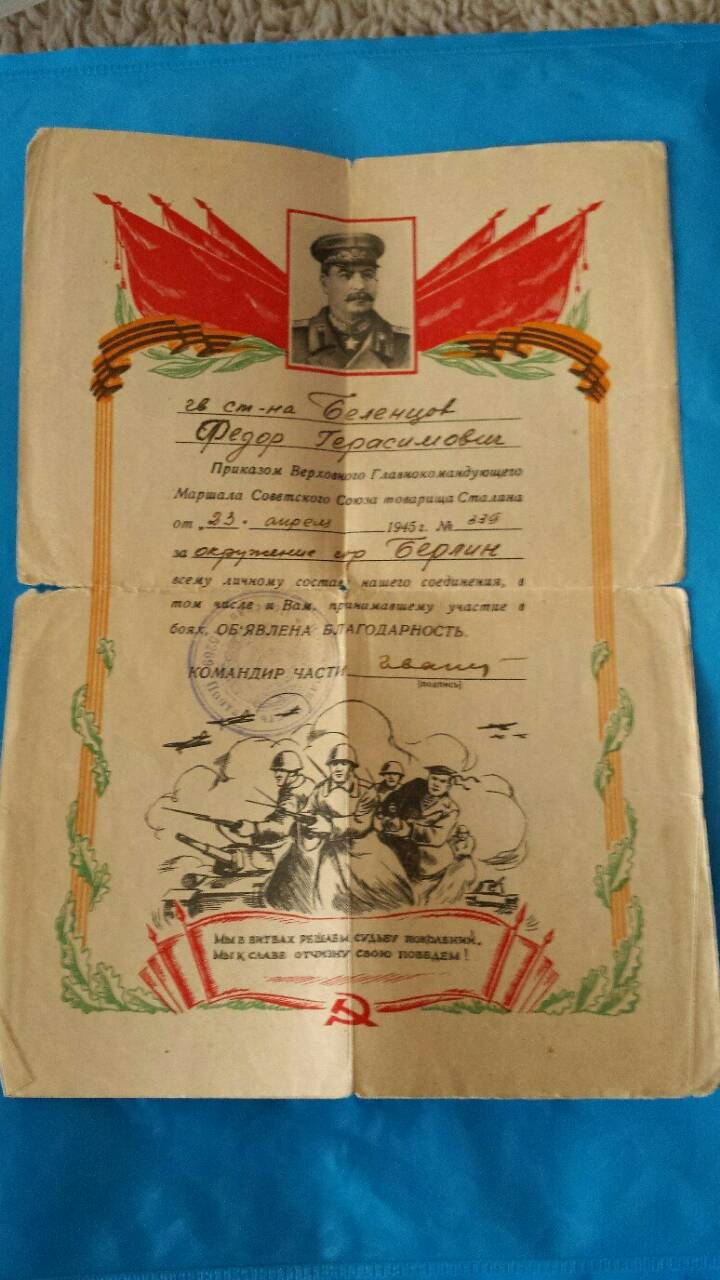 гв ст-на Беленцов
Федор Герасимович
Приказом Верховного Главнокомандующего
Маршала Советского Союза товарища Сталина
от „23" апреля 1945 г. № 339
за окружение гор Берлин
всему личному составу нашего соединения, в
том числе и Вам, принимавшему участие в
боях, ОБ'ЯВЛЕНА БЛАГОДАРНОСТЬ.
КОМАНДИР ЧАСТИ
(подпись)
МЫ В БИТВАХ РЕШАЕМ СУДЬБУ ПОКОЛЕНИЙ,
МЫ К СЛАВЕ ОТЧИЗНУ СВОЮ ПОВЕДЕМ!